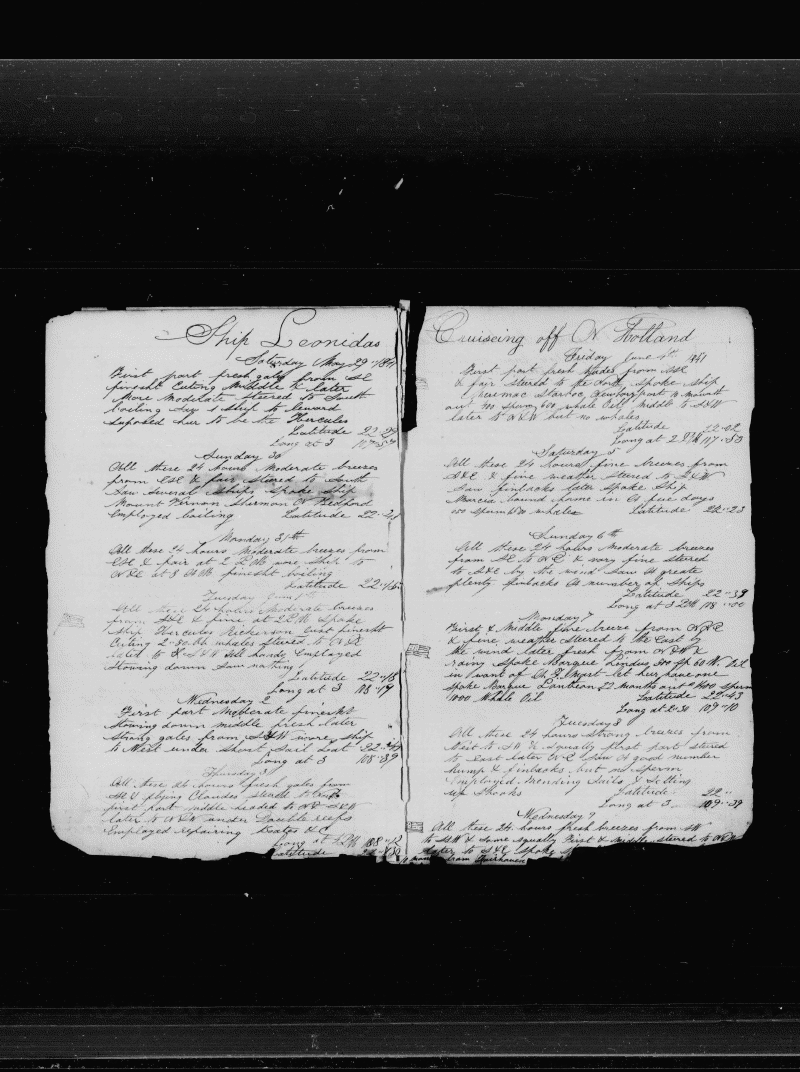 Ship Leonidas
Saturday May 29 1841
First part fresh gales from SE
finesht Cuting Middle & later
More Moderate steered to South
boiling Saw 1 Ship to leward
suposed hur to be the Hercules
Latitude 22
Long at 3
Sunday 30
All these 24 hours Moderate breezes
from ESE & fair stered to South
Saw Several Ships spoke Ship
Mount Vernon Sherman N Bedford
Employed boiling Latitude 22
Monday 31th
All these 24 hours Moderate breezes from
ESE & fair at 2 PM wore Ship to
NNE at 8 AM finesht boiling
Latitude 22
Tuesday June 1th
All these 24 hours Moderate breezes
from SSE & fine at 2 PM Spoke
Ship Hercules Rickerson Just finesht
Cuting 2 80 Bbl whales Stered to
later to All hands Employed
Stowing down Saw nothing
Latitude 22 "18
Long at 3 108 "19
Wednesday 2
First part Moderate finesht
Stowing down middle fresh later
Strong gales from SSW wore Ship
to West under Short Sail Lat 22
Long at 3 108 "39
Thursday 3
All these 24 hours fresh gales from
SE & flying Clouds stered
first part middle headed to
later to under Double reefs
Employed repairing boats &C
Long at 2 PM 108 "12
Latitude 22
Cruiscing off N Holland
Friday June 4th 1841
First part fresh trades from SSE
& fair sterd to the North Spoke Ship
Merrimac Starboc Newburyport 10 Months
out 700 Sperm 600 whale Oil Middle to SSW
later to but no whales
Latitude 22
Long at 2 PM 107 "53
Saturday 5
All these 24 hours fine breezes from
SSE & fine weather Stered to SSW
Saw finbacks later Spoke Ship
Marcia bound home in a few days
Sperm whales Latitude 22 "23
Sunday 6th
All these 24 hours Moderate breezes
from SE to NE & vary fine stered
to by the wind Saw A greate
plenty finbacks A number of Ships
Latitude 22 "39
Long at 3 PM 108 "00
Monday 7
First & Middle fine breeze from
& fine weather stered to the East by
the wind later fresh from
rainy Spoke Barque Lindus 300 Sp 60 W. Oil
in want of let hur have one
Spoke Barque Pantheon 22 Months out 400 Sperm
1000 Whale Oil Latitude 22 "43
Long at 2 30 109 "10
Tuesday 8
All these 24 hours Strong breezes from
West to & squally first part stered
to East later Saw A good number
hump & finbacks but no Sperm
Employed Mending Sails & Fitting
up Books Latitude 22 "
Long at 3 109 "39
Wednesday 9
All these 24 hours fresh breezes from SW
to SSW & some squally First & Middle stered to
later to SSE Spoke
from Fairhaven